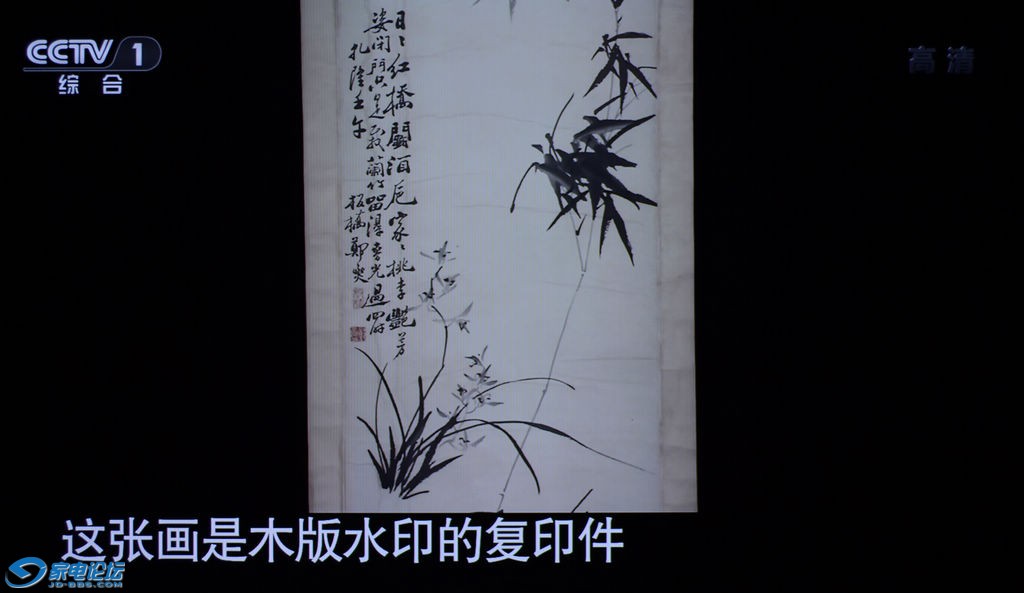 CCTV 1
综合
高清
日〻紅橋鬭酒卮家〻桃李艷芳
姿閉門只是栽蘭竹留得春光過四时
乾隆壬午
板橋鄭燮
这张画是木版水印的复印件
家电论坛
JD-BBS.COM